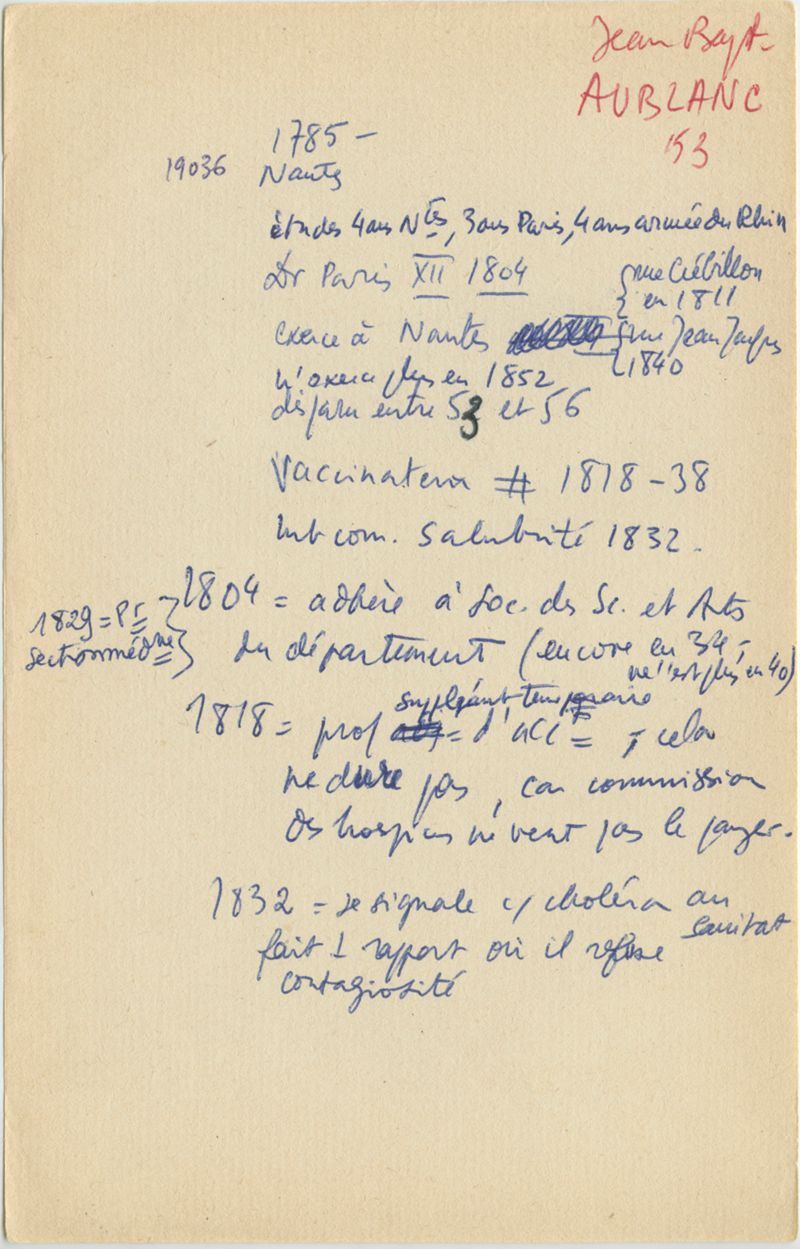 Jean Bapt.
AUBLANC
53
1785 –
19036 Nantes
études 4 ans Ntes, 3 ans Paris, 4 ans armée du Rhin
Dr Paris XII 1804
{ rue Crébillon
en 1811
exerce à Nantes { rue Jean Jacques
1840
n'exerce plus en 1852
disparu entre 53 et 56
Vaccinateur # 1818 – 38
mb com. Salubrité 1832.
1804 = adhère à Soc. des Sc. et Arts
1829 = Pr
section méd ne
du département (encore en 34 ;
ne l'est plus en 40)
suppléant temporaire
1818 = prof = d'acc = ; cela
ne dure pas, car commission
des hospices ne veut pas le payer.
1832 = se signale c/ choléra au
sanitat
fait 1 rapport où il refuse
contagiosité